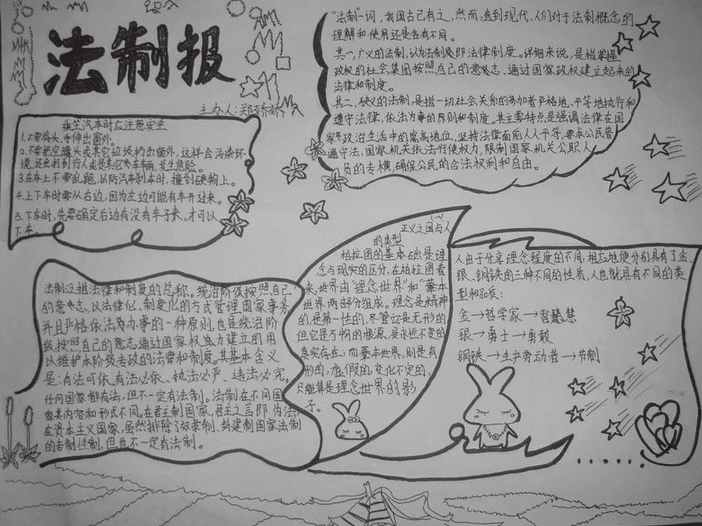 法制报
主办人:郑娇娇
乘坐汽车时应注意安全
1.不要将头、手伸出窗外。
2.不要把空罐头或其它垃圾扔出窗外,这样会污染环
境,还会打到行人或是其它汽车车辆,发生危险。
3.在车上不要乱跑,以防汽车刹车时,撞到硬物上。
4.上下车时要从右边,因为左边可能有车开过来。
5.下车时,先要确定后边有没有车子来,才可以
下车。
"法制"一词,我国古已有之,然而,直到现代,人们对于法制概念的
理解和使用还是各有不同。
其一、广义的法制,认为法制即法律制度。详细来说,是指掌握
政权的社会集团按照自己的意志、通过国家政权建立起来的
法律和制度。
其二、狭义的法制,是指一切社会关系的参加者严格地、平等地执行和
遵守法律,依法办事的原则和制度。其主要特点是强调法律在国
家政治生活中的崇高地位,坚持法律面前人人平等,要求公民普
遍守法,国家机关依法行使权力,限制国家机关公职人
员的专横,确保公民的合法权利和自由。
法制主指法律和制度的总称。统治阶级按照自己
的意志、以法律化、制度化的方式管理国家事务,
并且严格依法办事的一种原则。也是统治阶
级按照自己的意志通过国家权力建立的用
以维护本阶级专政的法律和制度,其基本含义
是:有法可依、有法必依、执法必严、违法必究,
任何国家都有法,但不一定有法制。法制在不同国
家其内容和形式不同。在君主制国家,君主之言即为法,
在资本主义国家,虽然排除了奴隶制、封建制国家法制
的专制性制,但也不一定有法制。
正义之国与人
的类型
柏拉图的基本立场是理
念与现实的区分,在柏拉图看
来,世界由"理念世界"和"基本
世界"两部分组成。理念是精神
的,是第一性的,尽管它是无形的
但它是万物的根源,是永恒不变的
真实存在;而基本世界,则是有
形的,虚假的,变化不定的,
只能算是理念世界的影
子。
人由于分享理念程度的不同,相应地便分别具有了金、
银、铜铁的三种不同的性质,人也就具有不同的类
型和品质:
金→哲学家→智慧
银→勇士→勇敢
铜铁→生产劳动者→节制